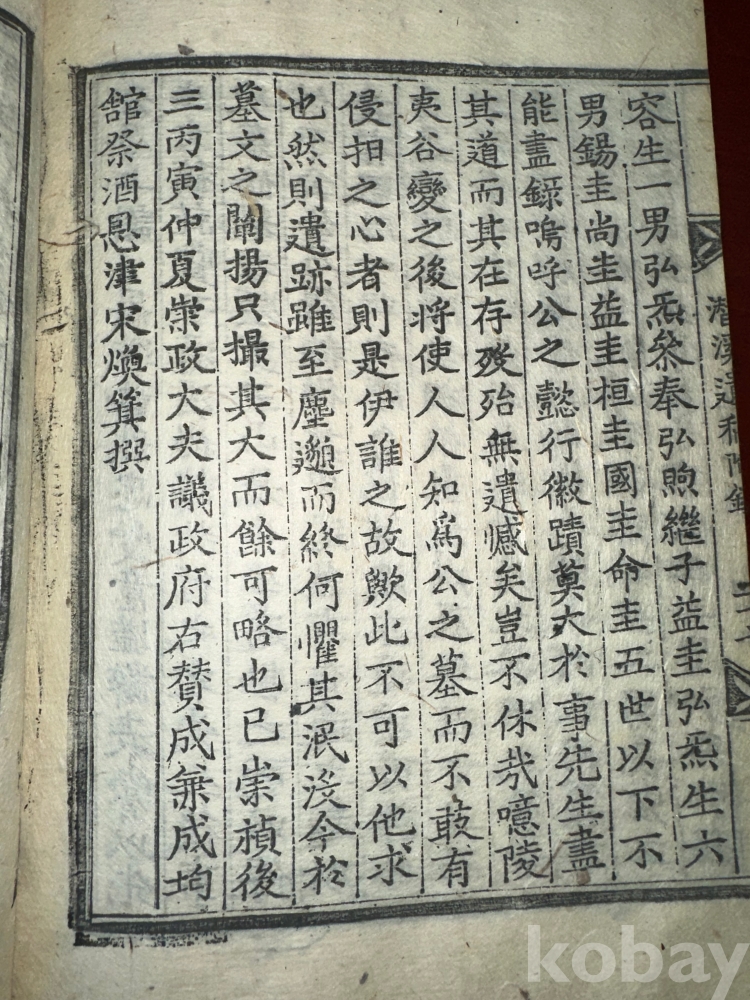 容生一男弘炁叅奉弘煦繼子益圭弘炁生六
男錫圭尚圭益圭桓圭國圭命圭五世以下不
能盡錄嗚呼公之懿行徽蹟莫大於事先生盡
其道而其在存歿殆無遺憾矣豈不休㦲噫陵
夷谷變之後將使人人知爲公之墓而不敢有
侵扣之心者則是伊誰之故歟此不可以他求
也然則遺跡雖至塵邈而終何懼其泯沒今於
墓文之闡揚只撮其大而餘可略也已崇禎後
三丙寅仲夏崇政大夫議政府右贊成兼成均
舘祭酒恩津宋煥箕撰
潛溪遺稿附錄
kobay